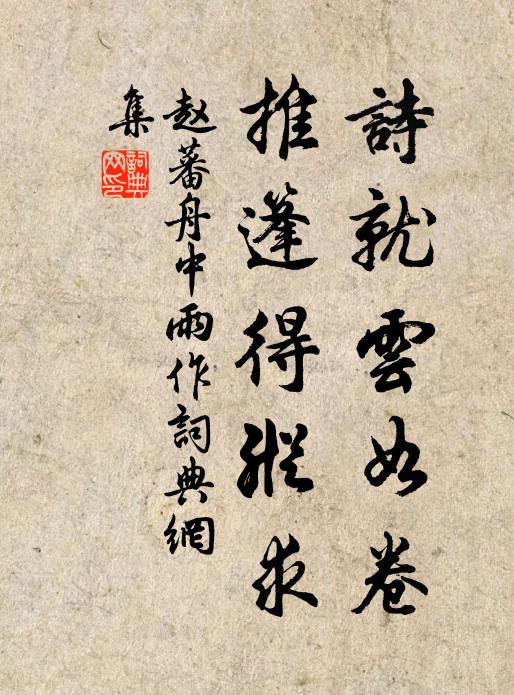 詩就雲如卷
推篷得縱求
赵蕃舟中雨作詞典網
集
詞典
网印